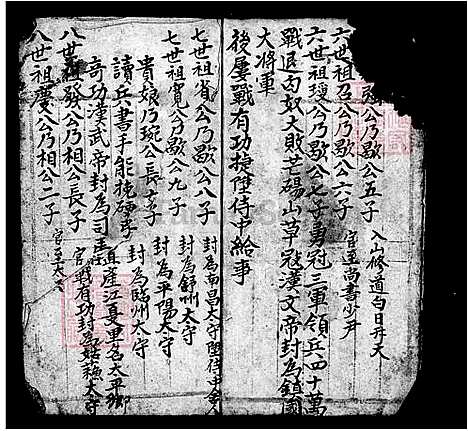 公乃歇公五子 入山修道白日升天
六世祖召公乃歇公六子 官至尚書少尹
六世祖瓊公乃歇公七子勇冠三軍領兵四十萬
戰退匈奴大敗芒碭山草寇漢文帝封為鎮國
大將軍
後屢戰有功捷陞侍中給事
七世祖省公乃歇公八子 封為南昌太守陞侍中舍人
七世祖寬公乃歇公九子 封為舒州太守
貴娘乃琬公長子 封為平陽太守
讀兵書手能挽硬弓 封為臨州太守
奇功漢武帝封為司馬 鎮産江夏里名太平鄉
八世祖發公乃相公長子 官戰有功封為太守
八世祖慶公乃相公二子 官至太